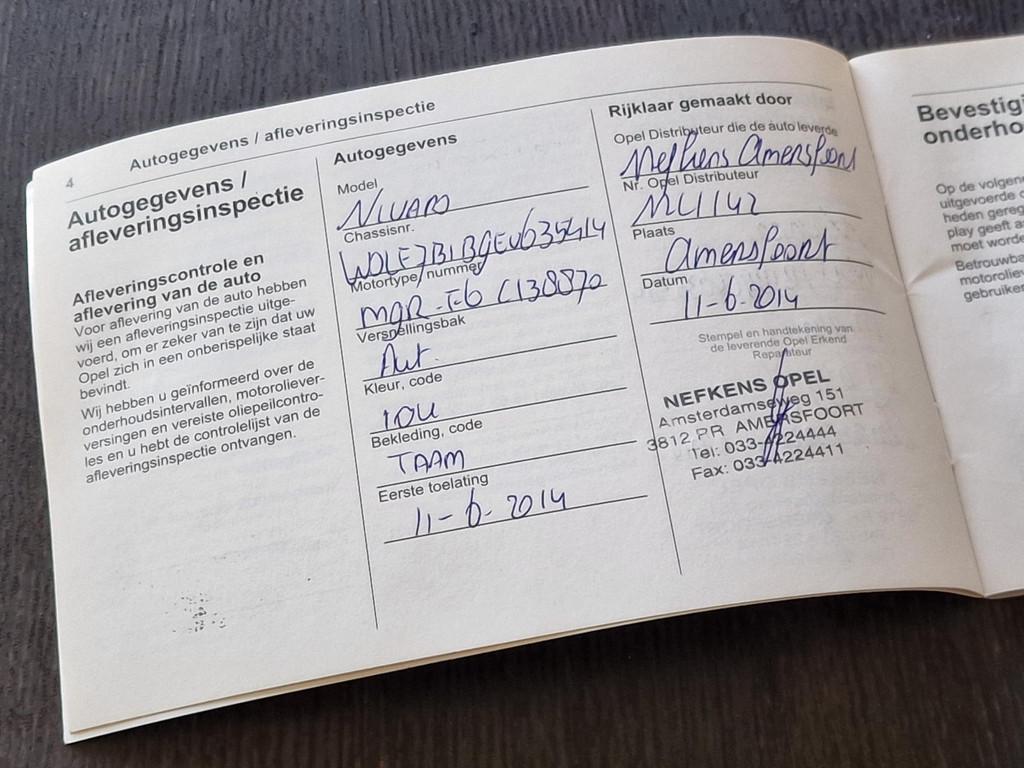 4
Autogegevens / afleveringsinspectie
Autogegevens /
afleveringsinspectie
Afleveringscontrole en
aflevering van de auto
Voor aflevering van de auto hebben
wij een afleveringsinspectie uitge-
voerd, om er zeker van te zijn dat uw
Opel zich in een onberispelijke staat
bevindt.
Wij hebben u geïnformeerd over de
onderhoudsintervallen, motoroliever-
versingen en vereiste oliepeilcontro-
les en u hebt de controlelijst van de
afleveringsinspectie ontvangen.
Autogegevens
Model
Nivaro
Chassisnr.
Motortype/nummer
C138870
Versnellingsbak
Aut.
Kleur, code
10U
Bekleding, code
TAAM
Eerste toelating
11-6-2014
Rijklaar gemaakt door
Opel Distributeur die de auto leverde
Nefkens Amersfoort
Nr. Opel Distributeur
NL1142
Plaats
Amersfoort
Datum
11-6-2014
Stempel en handtekening van
de leverende Opel Erkend
Reparateur
NEFKENS OPEL
Amsterdamseweg 151
3812 PR AMERSFOORT
Tel: 033-4224444
Fax: 033-4224411
Bevestigi
onderho
Op de volgen
uitgevoerde o
heden gereg
play geeft a
moet worde
Betrouwba
motoroliev
gebruiken